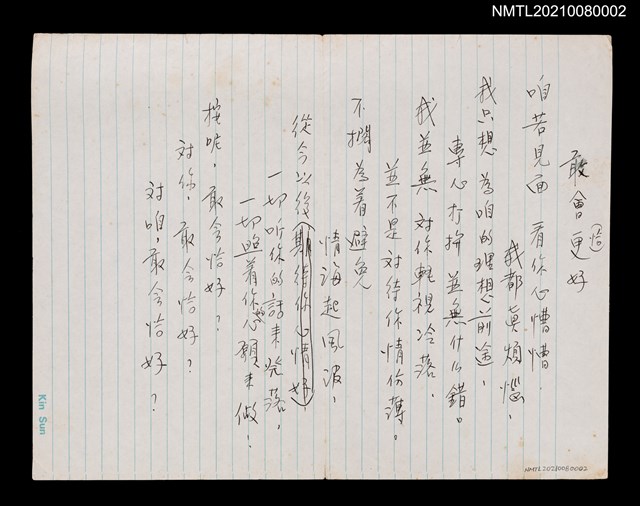 NMTL20210080002
敢會更好
(恰)
咱若見面 看你心慒慒.
我都真煩惱.
我只想 為咱的理想前途,
專心打拚 並無什么錯。
我並無 對你輕視冷落.
並不是對待你情份薄。
不擱為著避免
情海起風波,
從今以後(期待你心情好)
一切听你的話來發落,
一切照着你心願來做!
按呢, 敢会恰好?
对你, 敢会恰好?
对咱, 敢会恰好?
Kin Sun
NMTL20210080002